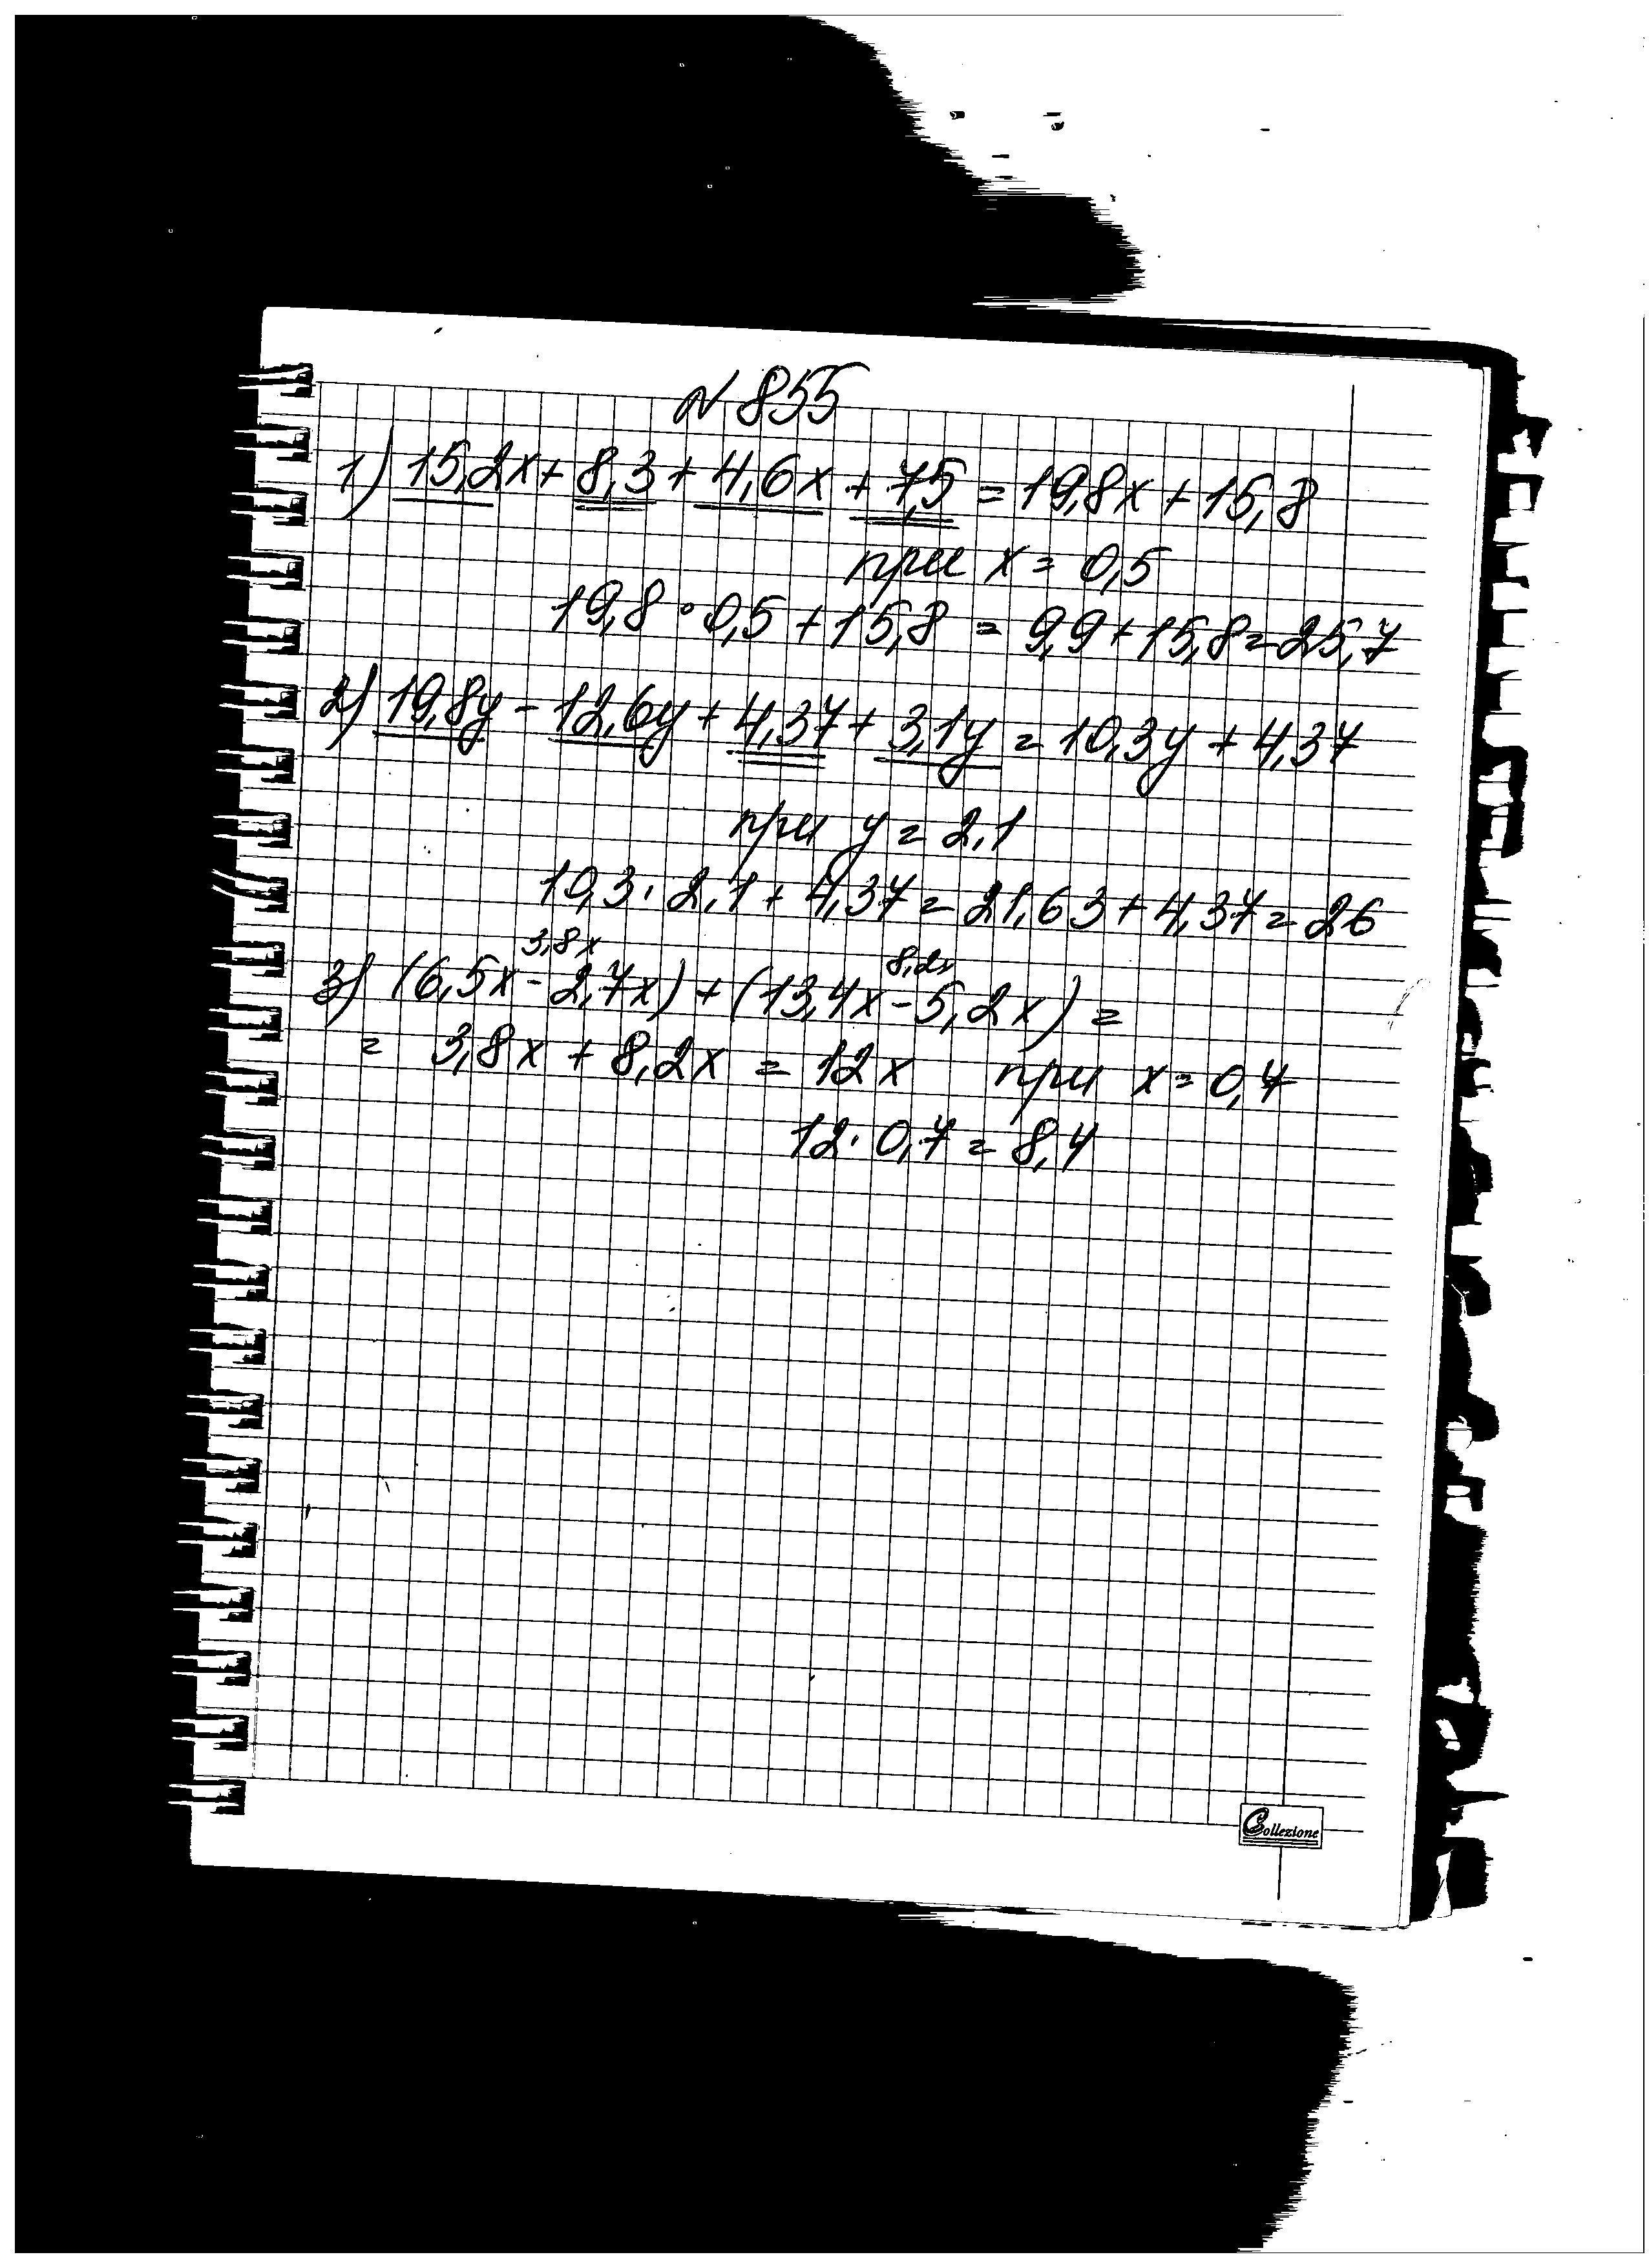 N 855
1) 15,2x + 8,3 + 4,6x + 7,5 = 19,8x + 15,8
при x = 0,5
19,8 · 0,5 + 15,8 = 9,9 + 15,8 = 25,7
2) 19,8y - 12,6y + 4,37 + 3,1y = 10,3y + 4,37
при y = 2,1
10,3 · 2,1 + 4,37 = 21,63 + 4,37 = 26
3,8x 8,2x
3) (6,5x - 2,7x) + (13,4x - 5,2x) =
= 3,8x + 8,2x = 12x при x = 0,7
12 · 0,7 = 8,4
Collezione